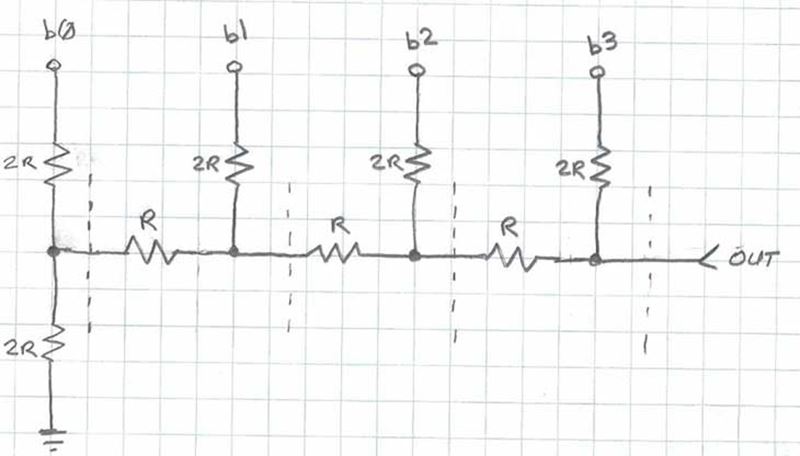 bØ b1 b2 b3
2R 2R 2R 2R
R R R
OUT
2R